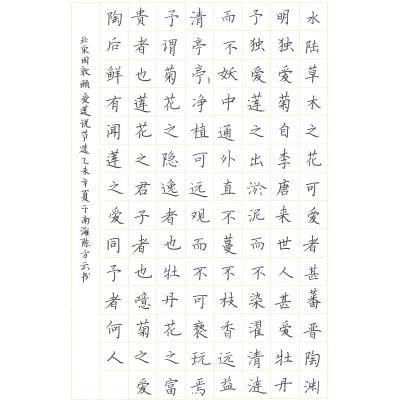 水陆草木之花可爱者甚蕃晋陶渊
明独爱菊自李唐来世人甚爱牡丹
予独爱莲之出淤泥而不染濯清涟
而不妖中通外直不蔓不枝香远益
清亭亭净植可远观而不可亵玩焉
予谓菊花之隐逸者也牡丹花之富
贵者也莲花之君子者也噫菊之爱
陶后鲜有闻莲之爱同予者何人
北宋周敦颐爱莲说节选乙未年夏于南海陈方云书